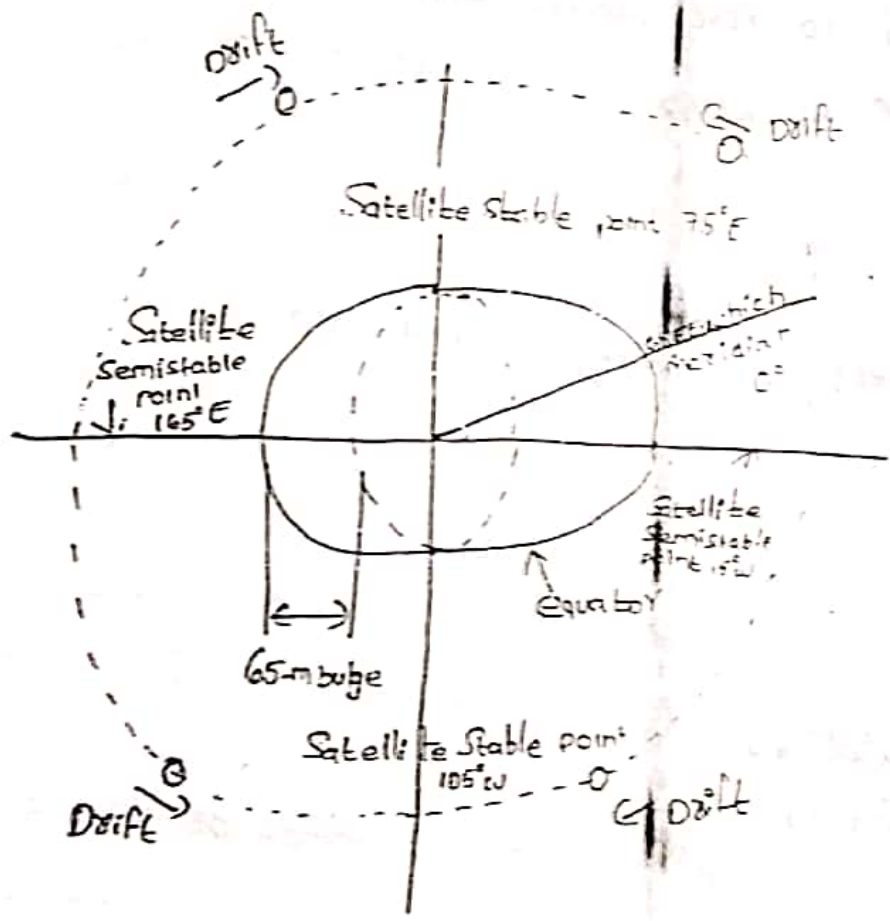 Drift
Drift
Satellite Stable point 75°E
Stellite
Semistable
point
165°E
meridian
0°
Stellite
Semistable
point 15°W
Equator
65-m bulge
Satellite Stable point
105°W
Drift
Drift